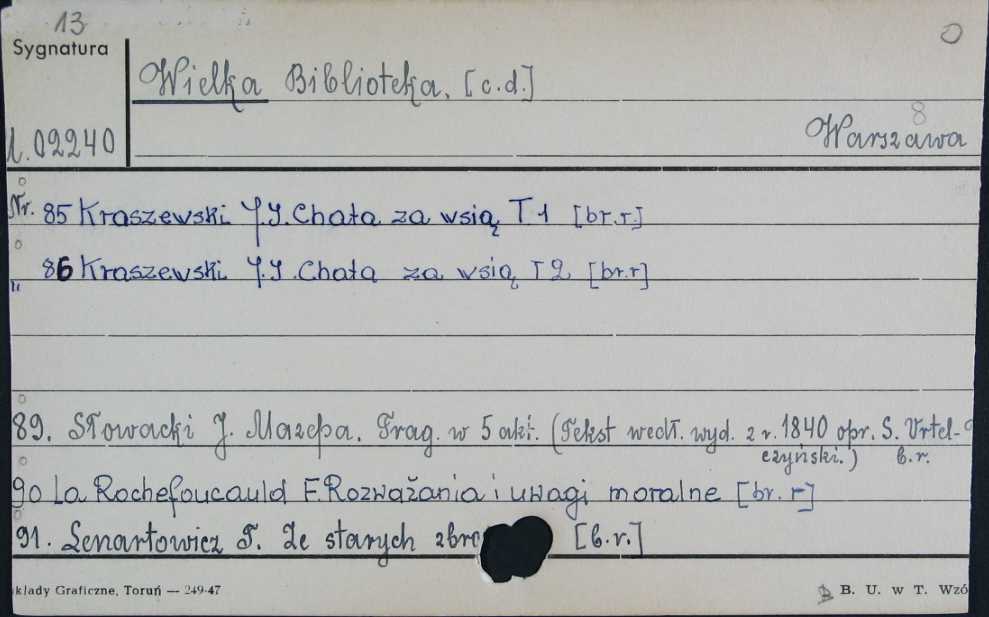 13
Sygnatura
Wielka Biblioteka. [c.d.]
8
1.02240
Warszawa
Nr. 85 Kraszewski J.I. Chata za wsią T.1 [br.r.]
" 86 Kraszewski J.I. Chata za wsią T 2 [br.r]
89. Słowacki J. Mazepa. Trag. w 5 akt. (Tekst wedł. wyd. z r. 1840 opr. S. Vrtel-
czyński.) b.r.
90 La Rochefoucauld F. Rozważania i uwagi moralne [br. r]
91. Lenartowicz T. Ze starych [b.r.]
kłady Graficzne, Toruń — 249-47
B. U. w T. Wzó